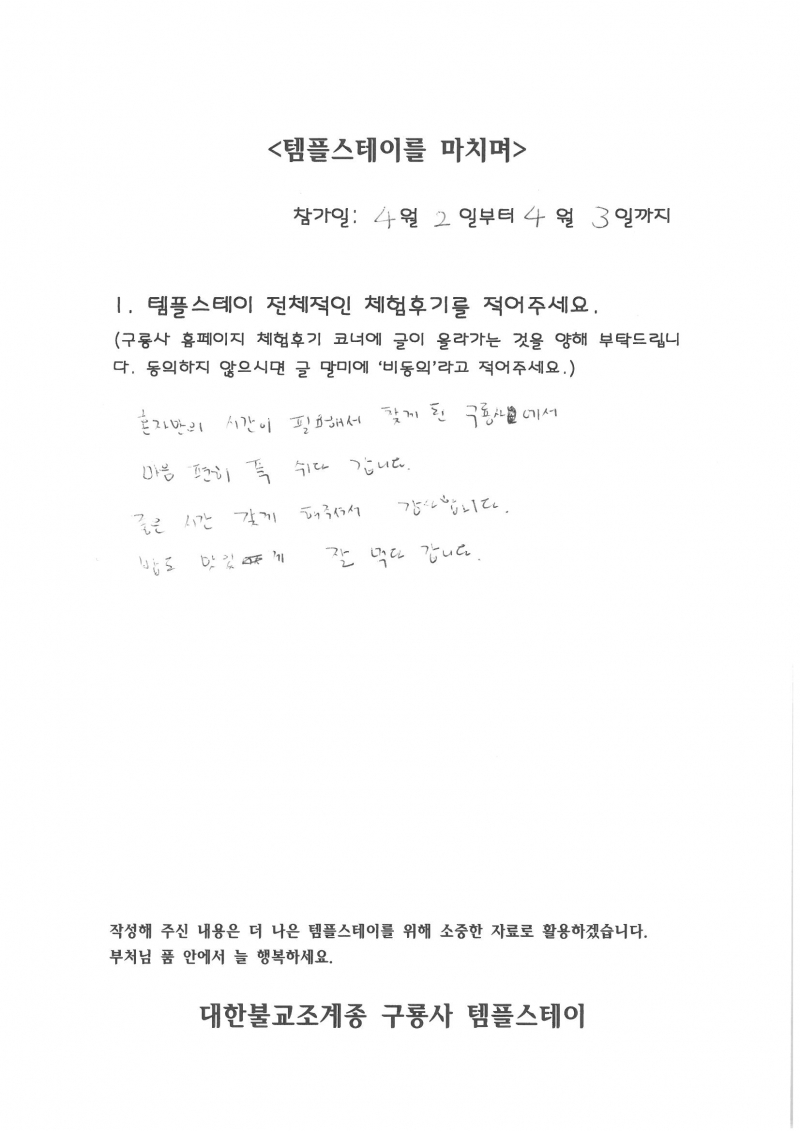 <템플스테이를 마치며>
참가일: 4월 2일부터 4월 3일까지
1. 템플스테이 전체적인 체험후기를 적어주세요.
(구룡사 홈페이지 체험후기 코너에 글이 올라가는 것을 양해 부탁드립니
다. 동의하지 않으시면 글 말미에 '비동의'라고 적어주세요.)
혼자만의 시간이 필요해서 찾게 된 구룡사에서
마음 편히 푹 쉬다 갑니다.
좋은 시간 갖게 해주셔서 감사합니다.
밥도 맛있게 잘 먹다 갑니다.
작성해 주신 내용은 더 나은 템플스테이를 위해 소중한 자료로 활용하겠습니다.
부처님 품 안에서 늘 행복하세요.
대한불교조계종 구룡사 템플스테이